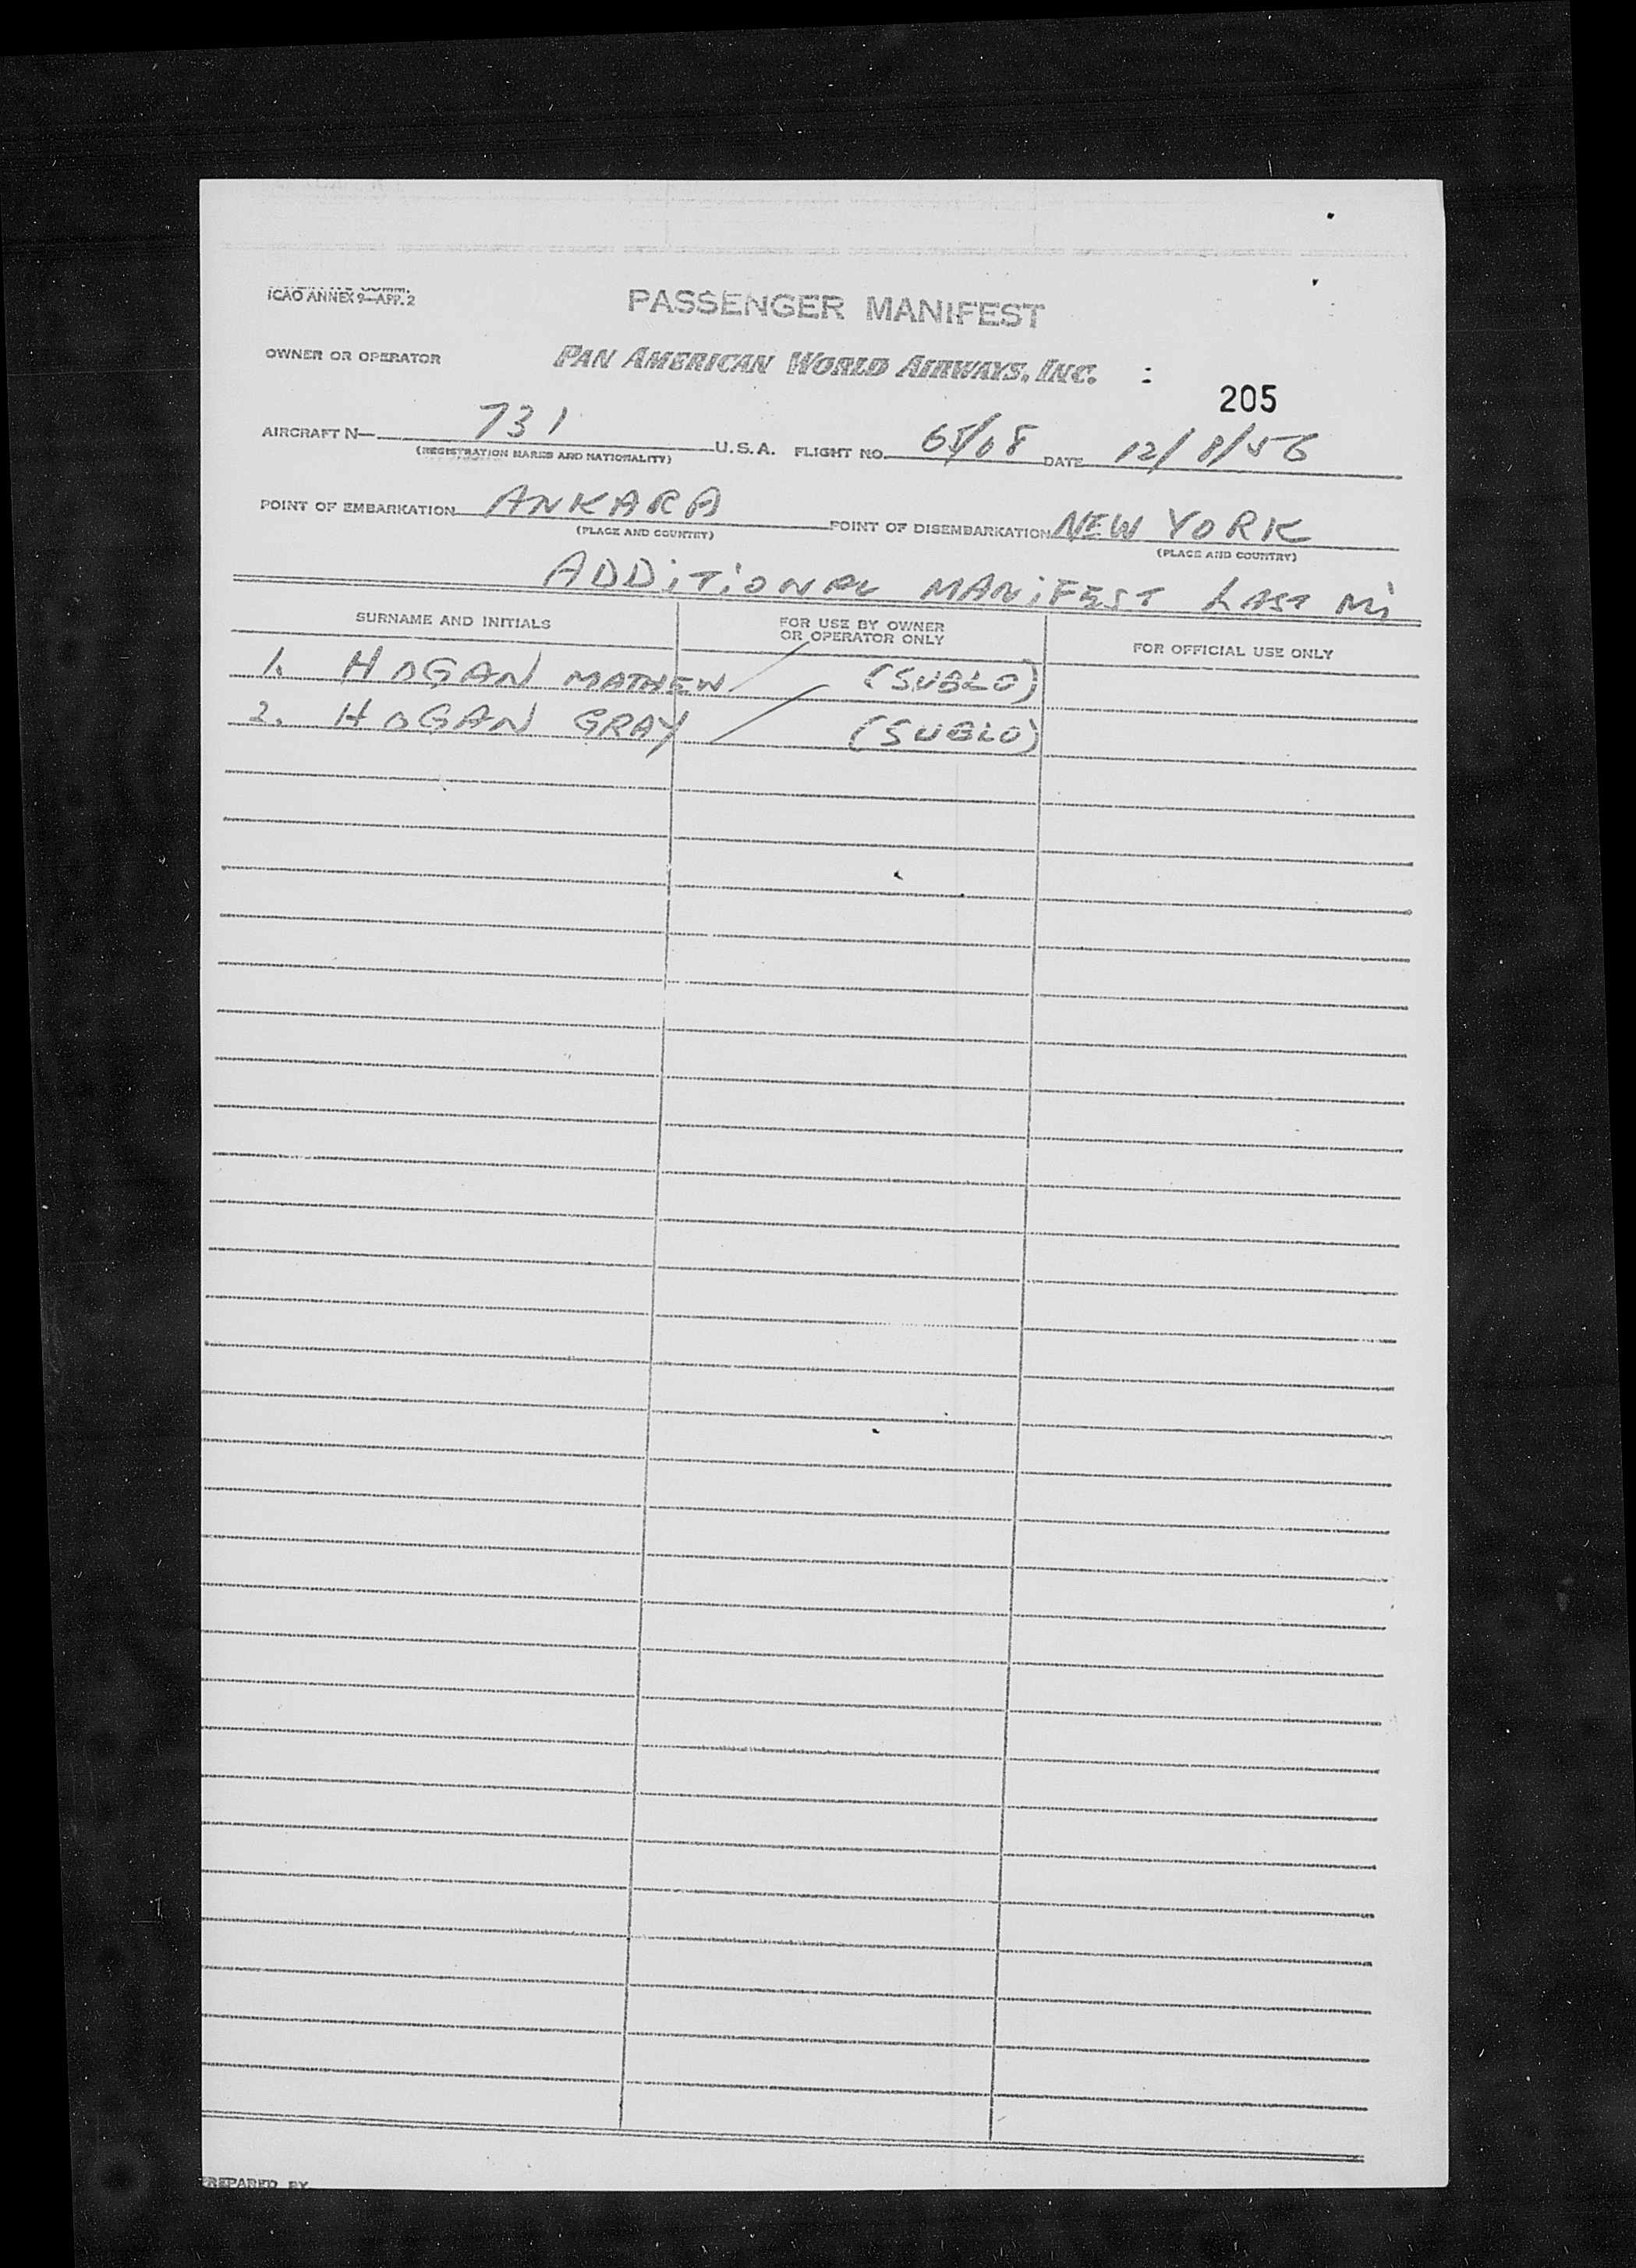 ICAO ANNEX 9—APP. 2
PASSENGER MANIFEST
OWNER OR OPERATOR PAN AMERICAN WORLD AIRWAYS, INC.
205
AIRCRAFT N— 731 U.S.A. FLIGHT NO. 65/08 DATE 12/8/56
(REGISTRATION MARKS AND NATIONALITY)
POINT OF EMBARKATION ANKARA POINT OF DISEMBARKATION NEW YORK
(PLACE AND COUNTRY) (PLACE AND COUNTRY)
ADDITIONAL MANIFEST LAST Mi
SURNAME AND INITIALS FOR USE BY OWNER OR OPERATOR ONLY FOR OFFICIAL USE ONLY
1. HOGAN MATHEW (SUBLO)
2. HOGAN GRAY (SUBLO)
PREPARED BY